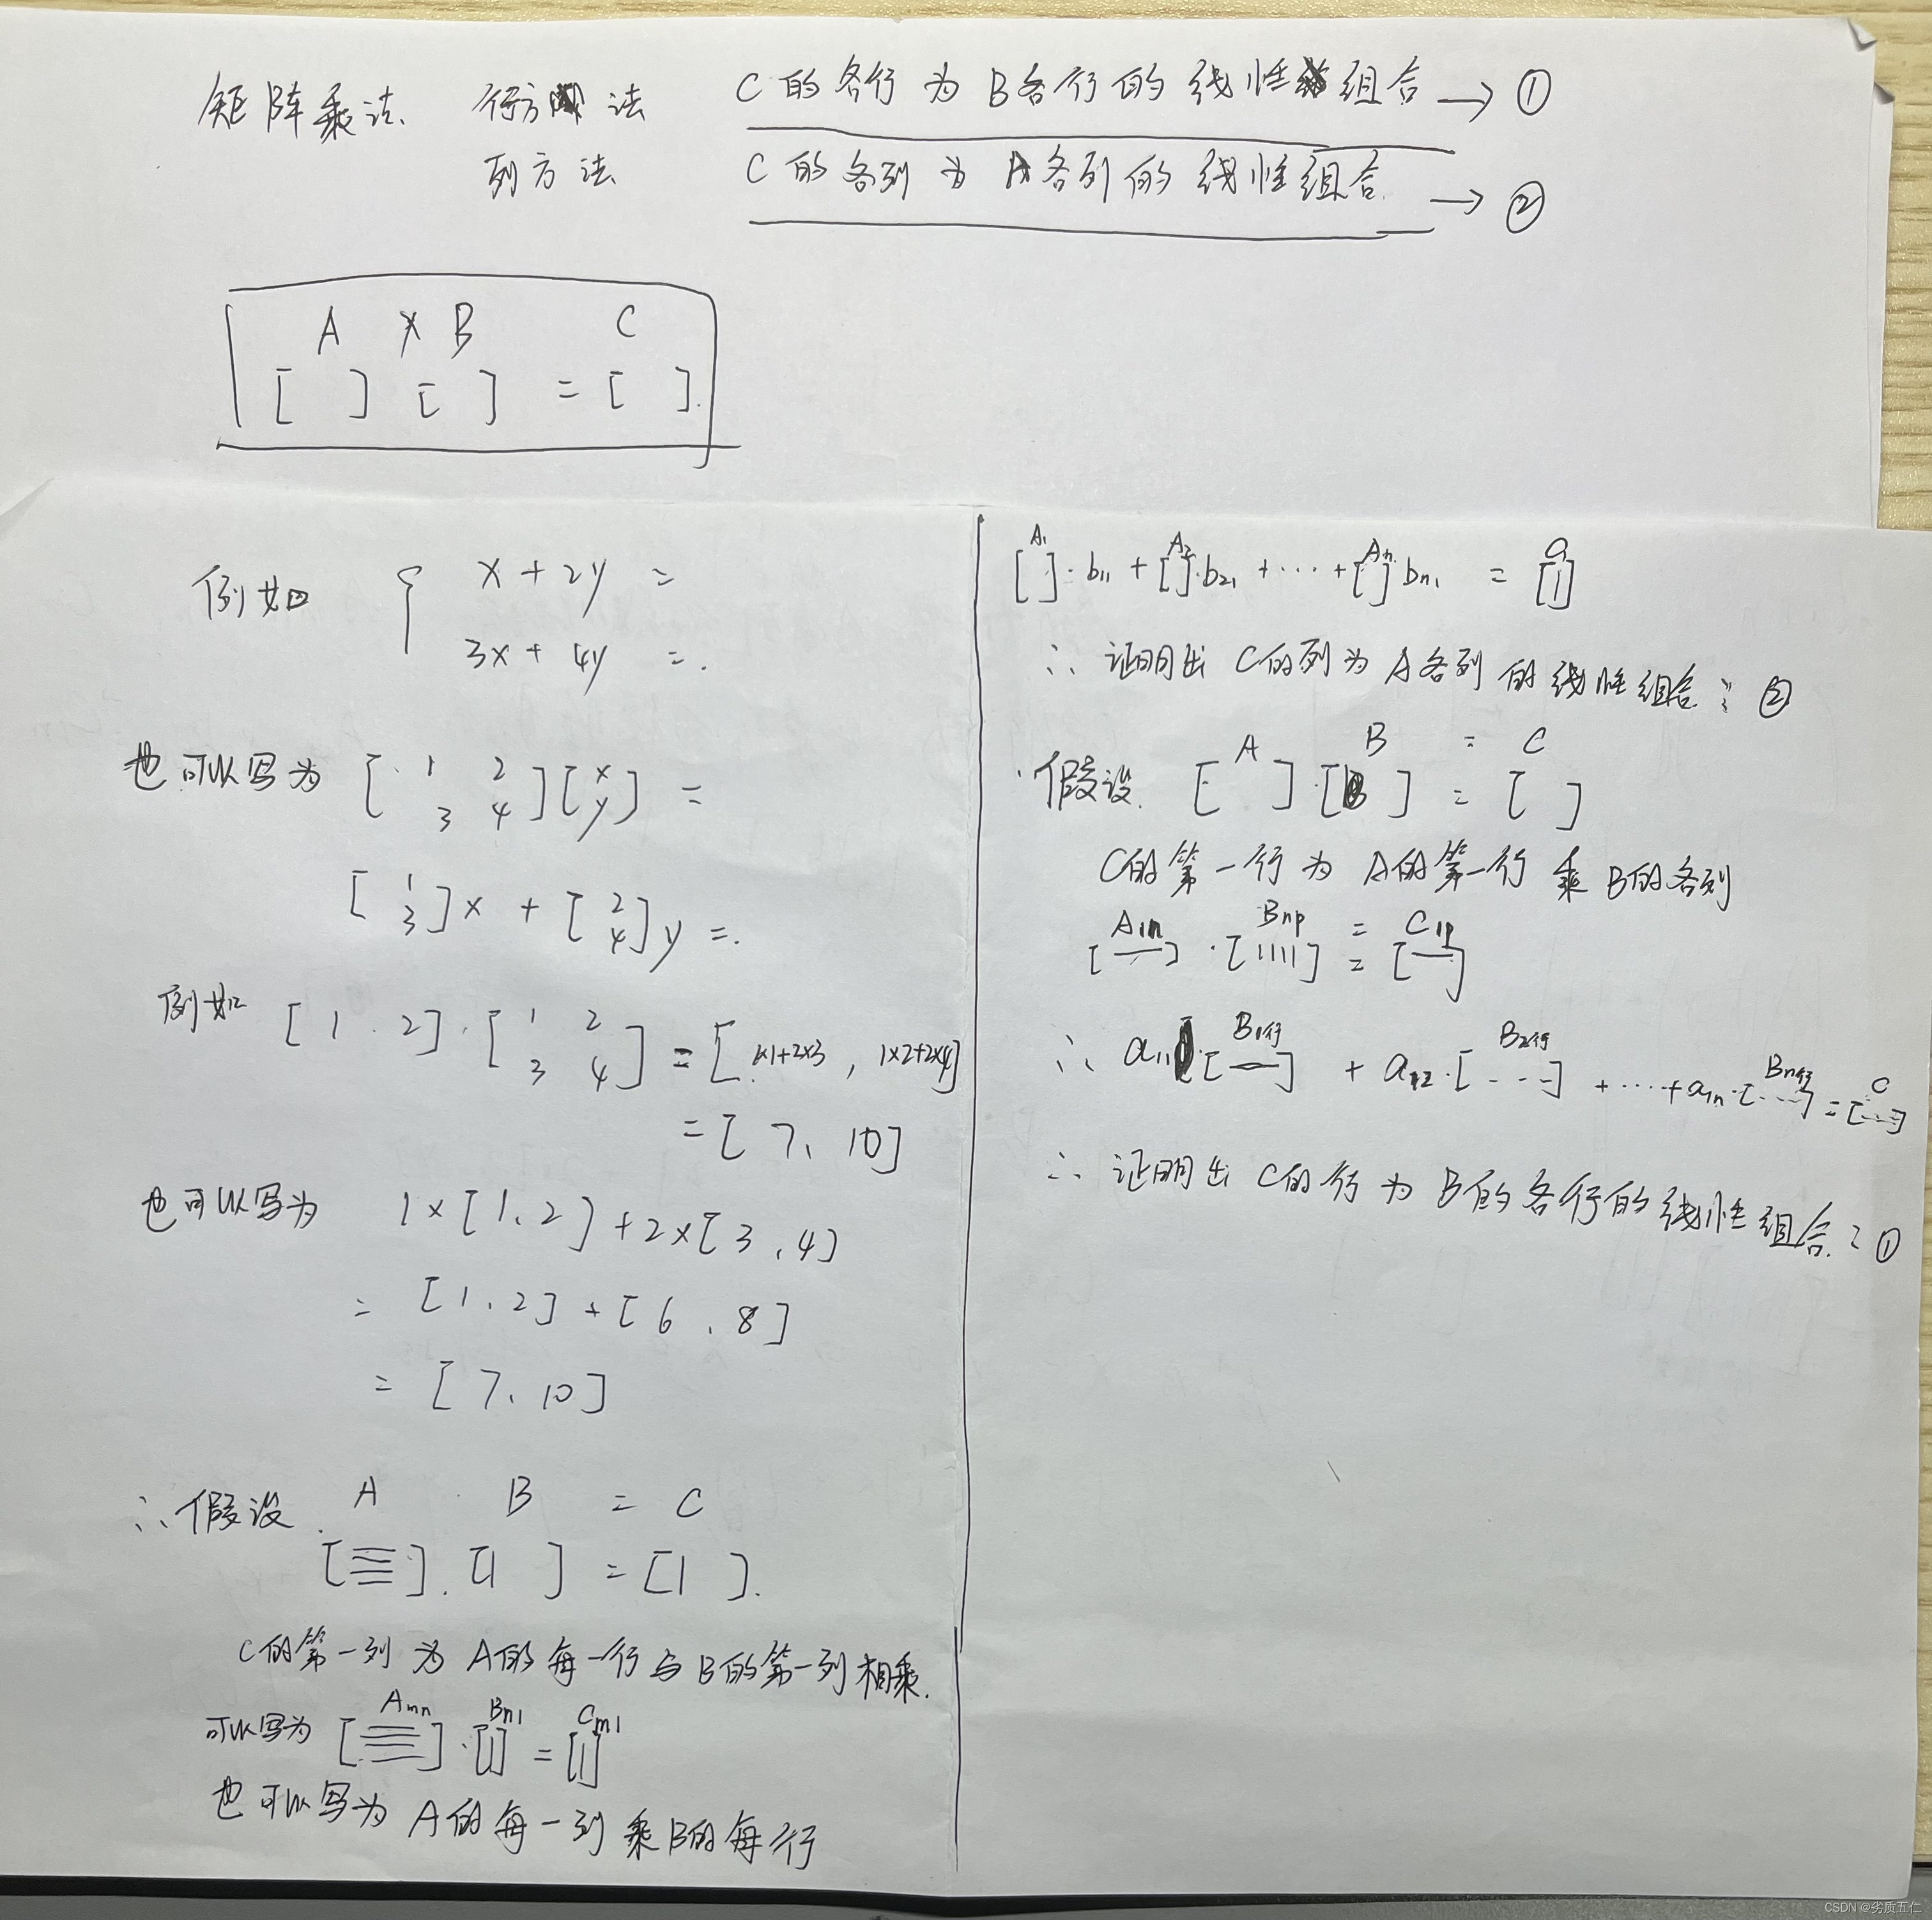 矩阵乘法 行方法 C的各行为B各行的线性组合 → ①
列方法 C的各列为A各列的线性组合. → ②
A × B C
[ ] [ ] = [ ].
例如 { x + 2y =
3x + 4y = .
也可以写为 [ 1 2 ] [ x ] =
3 4 y
[ 1 ] x + [ 2 ] y = .
3 4
例如 [ 1 . 2 ] · [ 1 2 ] = [ 1×1+2×3 , 1×2+2×4 ]
3 4
= [ 7、 10 ]
也可以写为 1 × [ 1、2 ] + 2 × [ 3 , 4 ]
= [ 1、2 ] + [ 6 、8 ]
= [ 7、10 ]
∴ 假设 A · B = C
[ ] . [ ] = [ ].
C的第一列为A的每一行与B的第一列相乘.
可以写为 Amn · Bn1 = Cm1
也可以写为 A的每一列乘B的每行
A1 A2 An C1
[ ] · b11 + [ ] · b21 + ··· + [ ] · bn1 = [ ]
∴ 证明出 C的列为A各列的线性组合 ②
假设. A B = C
[ ] · [ ] = [ ]
C的第一行为A的第一行乘B的各列
A1n Bnp = C1p
[ ] · [ ] = [ ]
∴ a11 · [ B1行 ] + a12 · [ B2行 ] + ···· + a1n · [ Bn行 ] = [ C ]
∴ 证明出 C的行为B的各行的线性组合 ①
CSDN @劣质五仁